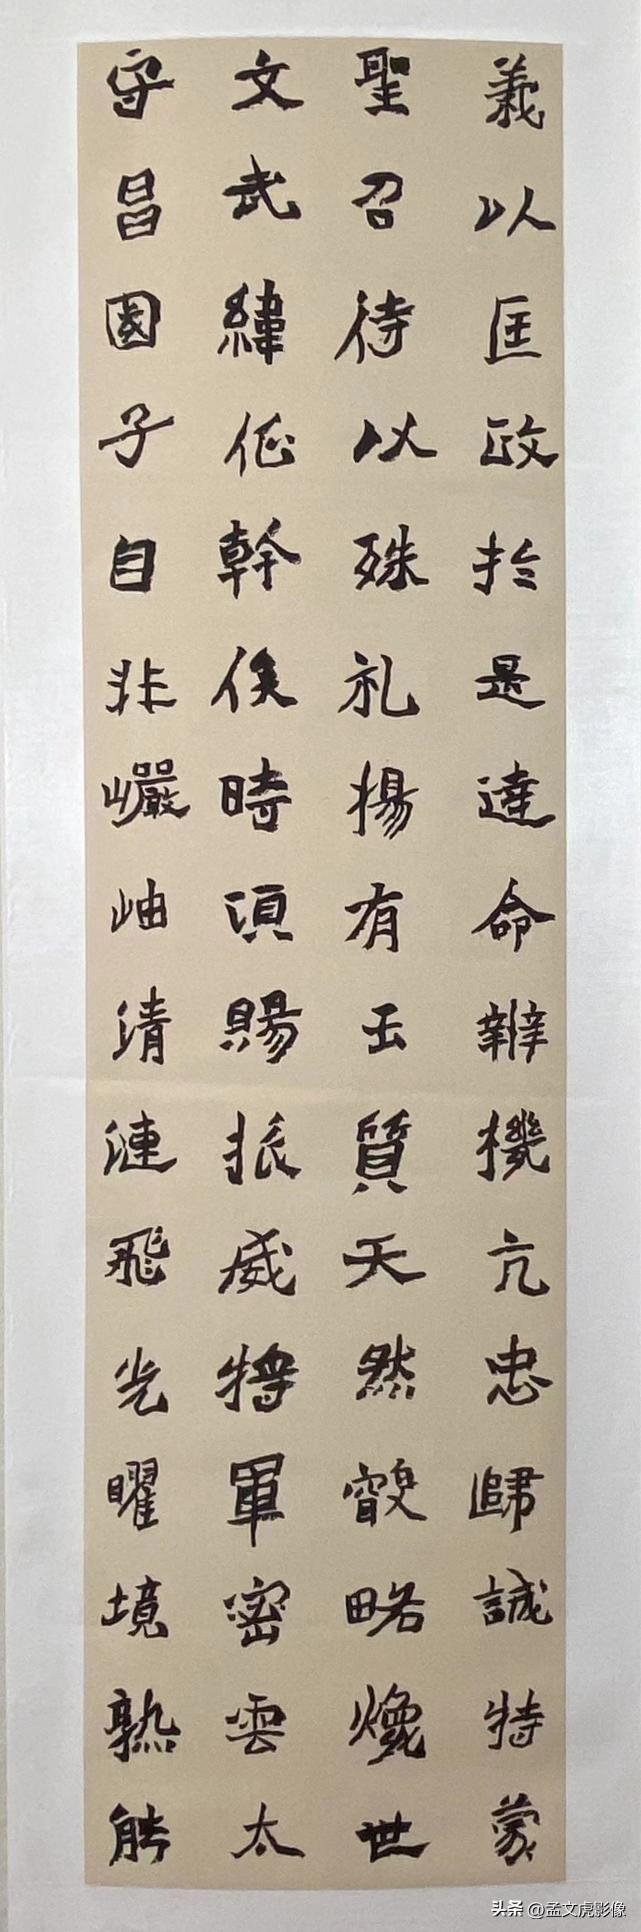 義以匡政於是達命辯機亢忠歸誠特蒙
聖召待以殊礼揚有玉質天然叡略煥世
文武緯佐幹侯時須賜振威將軍密雲太
守昌國子自非巖岫清漣飛光曜境熟能
头条 @孟文虎影像